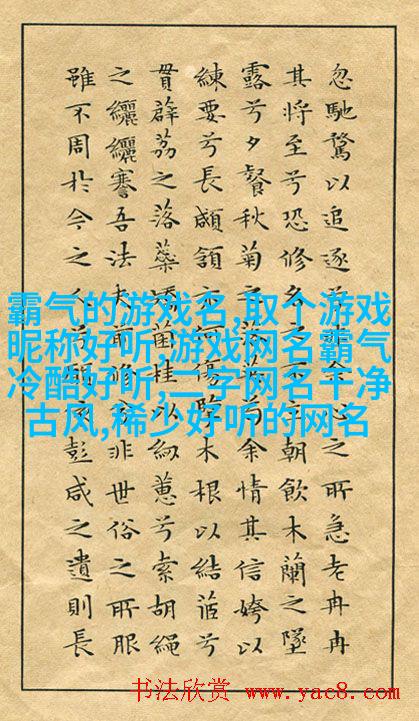 忽馳騖以追逐心之所急老冉冉
其將至兮恐修名之不朝飲木蘭之墜
露兮夕餐秋菊之余情其信姱以
練要兮長顑頷亦何傷擥木根以結茝兮
貫薜荔之落蘂矯菌桂以紉蕙兮索胡繩
之纚纚謇吾法夫前非世俗之所服
雖不周於今之人兮彭咸之遺則長
霸气的游戏名,取个游戏
昵称好听,游戏网名霸气
冷酷好听,二字网名干净
古风,稀少好听的网名
书法欣赏 www.yac8.com